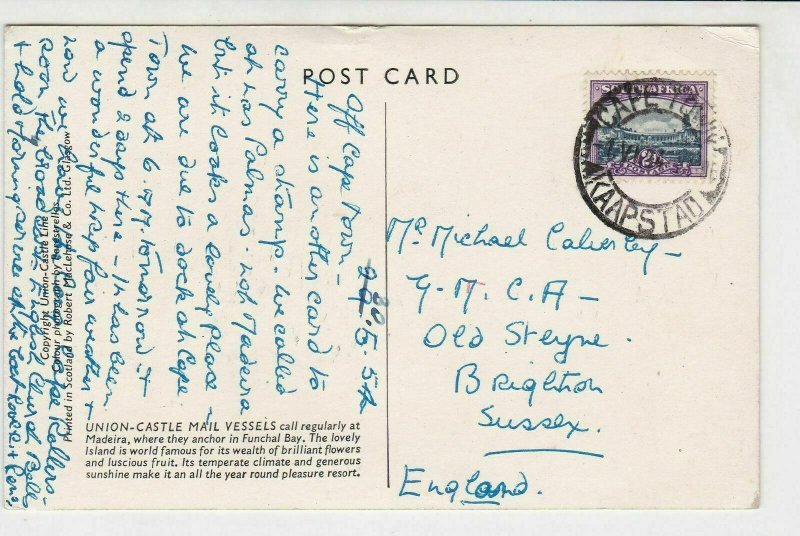 POST CARD
Off Cape Town –
30.5.54
Here is another card to
carry a stamp. We called
at Las Palmas. not Madeira
but it looks a lovely place –
We are due to dock at Cape
Town at 6 AM. tomorrow &
spend 2 days there – It has been
a wonderful trip fair weather &
now we have Cape Rollers –
soon. English Church Bells
& hold
Copyright Union-Castle Line
Colour photograph by
Printed in Scotland by Robert MacLehose & Co. Ltd. Glasgow
UNION-CASTLE MAIL VESSELS call regularly at
Madeira, where they anchor in Funchal Bay. The lovely
Island is world famous for its wealth of brilliant flowers
and luscious fruit. Its temperate climate and generous
sunshine make it an all the year round pleasure resort.
SOUTH AFRICA
CAPE TOWN
KAAPSTAD
Mr Michael Calverley –
Y. M. C. A –
Old Steyne.
Brighton
Sussex.
England.